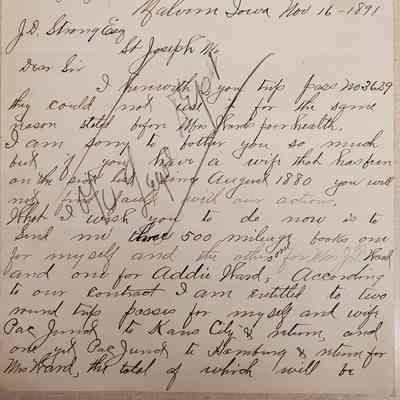 Malvern Iowa Nov 16-1891
J.D. Strong Esq
St Joseph Mo
Dear Sir
I herewith you trip pass No 3629
they could not use it for the same
reason stated before Mrs Wards poor health.
I am sorry to bother you so much
but if you have a wife that has been
on the sick list since August 1880 you will
not find fault with our actions.
What I wish you to do now is to
Send me three 500 mileage books one
for myself and the others for Mrs J.D. Ward
and one for Addie Ward, According
to our contract I am entitled to two
round trip passes for myself and wife
Pac Junct to Kans City & return, and
one yet Pac Junct to Hamburg & return for
Mrs Ward, the total of which will be